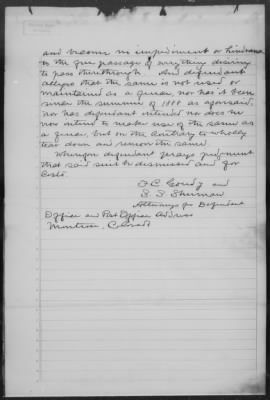 and become an impediment or hindrance
to the free passage of every thing desiring
to pass therethrough. And defendant
alleges that the same is not used or
maintained as a fence, nor has it been
since the summer of 1888 as aforesaid,
nor has defendant intended nor does he
now intend to make use of the same as
a fence, but on the contrary to wholly
tear down and remove the same.
Wherefore defendant prays judgment
that said suit be dismissed and for
Costs.
F. C. Goudy and
S. S. Sherman
Attorneys for Defendant
Office and Post Office Address
Montrose, Colorado